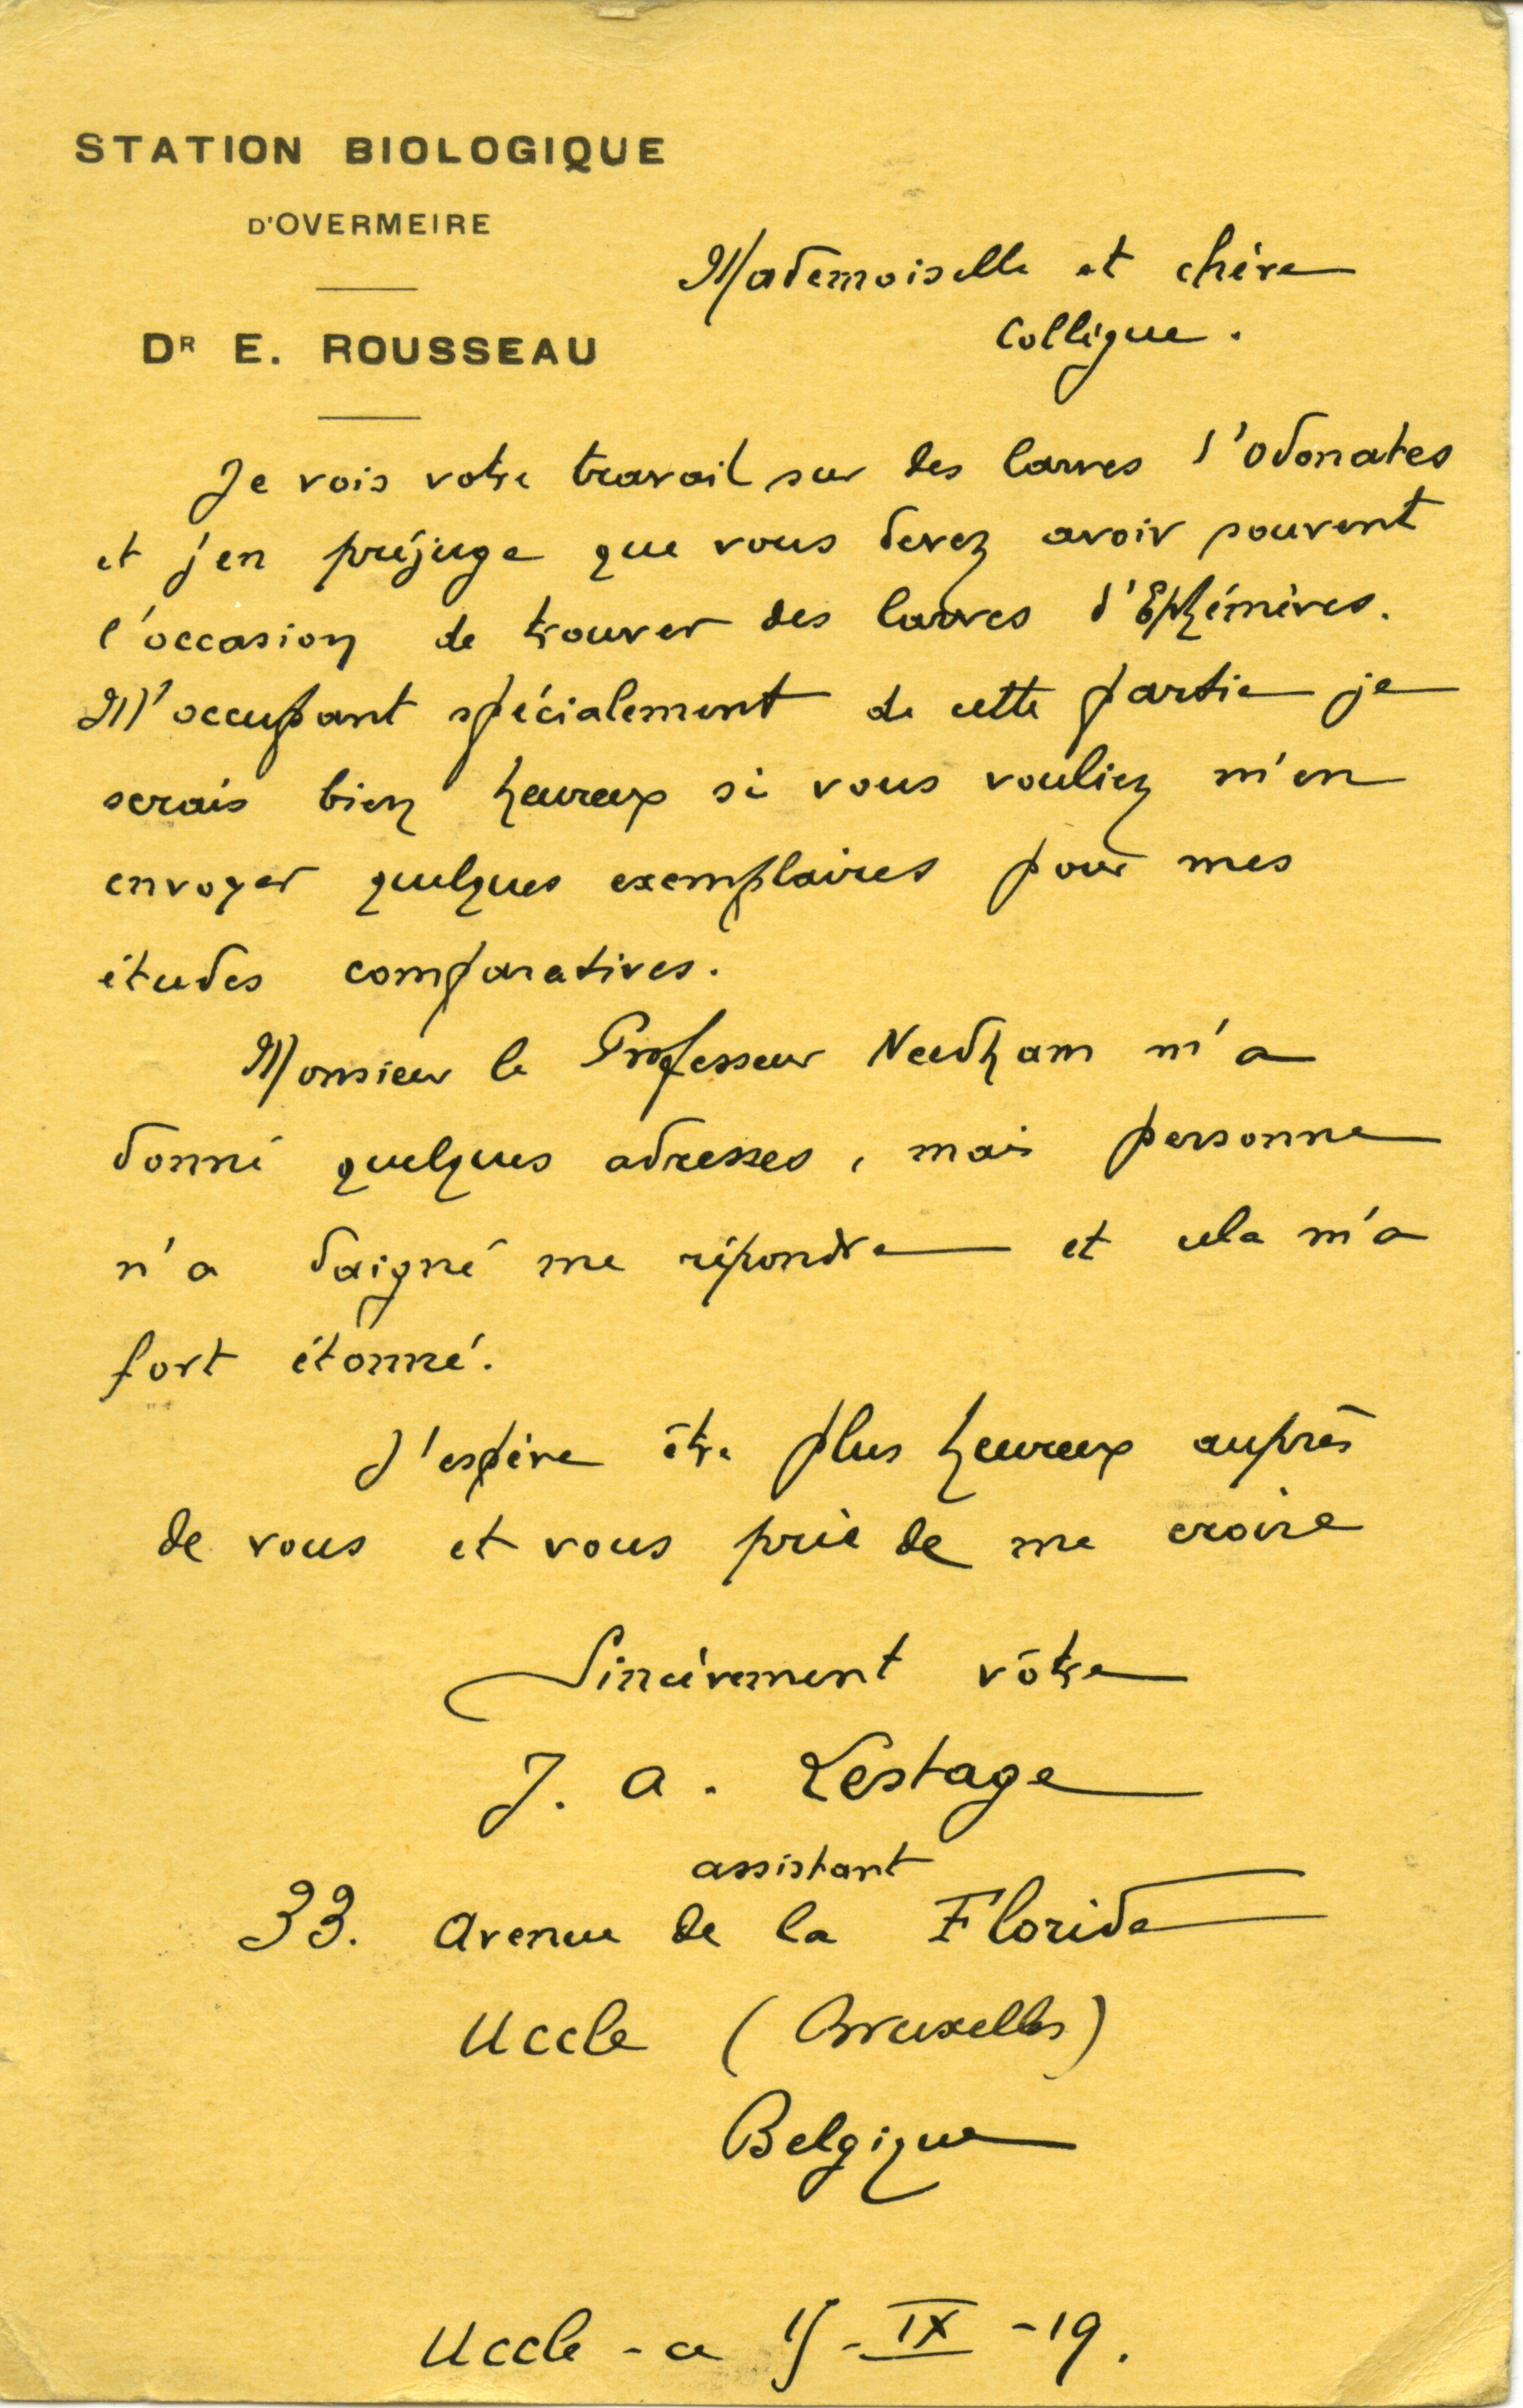 STATION BIOLOGIQUE
D'OVERMEIRE
DR E. ROUSSEAU
Mademoiselle et chère
Collègue.
Je vois votre travail sur des larves d'Odonates
et j'en préjuge que vous devez avoir souvent
l'occasion de trouver des larves d'Ephémères.
M'occupant spécialement de cette partie je
serais bien heureux si vous vouliez m'en
envoyer quelques exemplaires pour mes
études comparatives.
Monsieur le Professeur Needham m'a
donné quelques adresses, mais personne
n'a daigné me répondre et cela m'a
fort étonné.
J'espère être plus heureux auprès
de vous et vous prie de me croire
Sincèrement vôtre
J. A. Lestage
assistant
33. Avenue de la Floride
Uccle (Bruxelles)
Belgique
Uccle - ce - IX - 19.